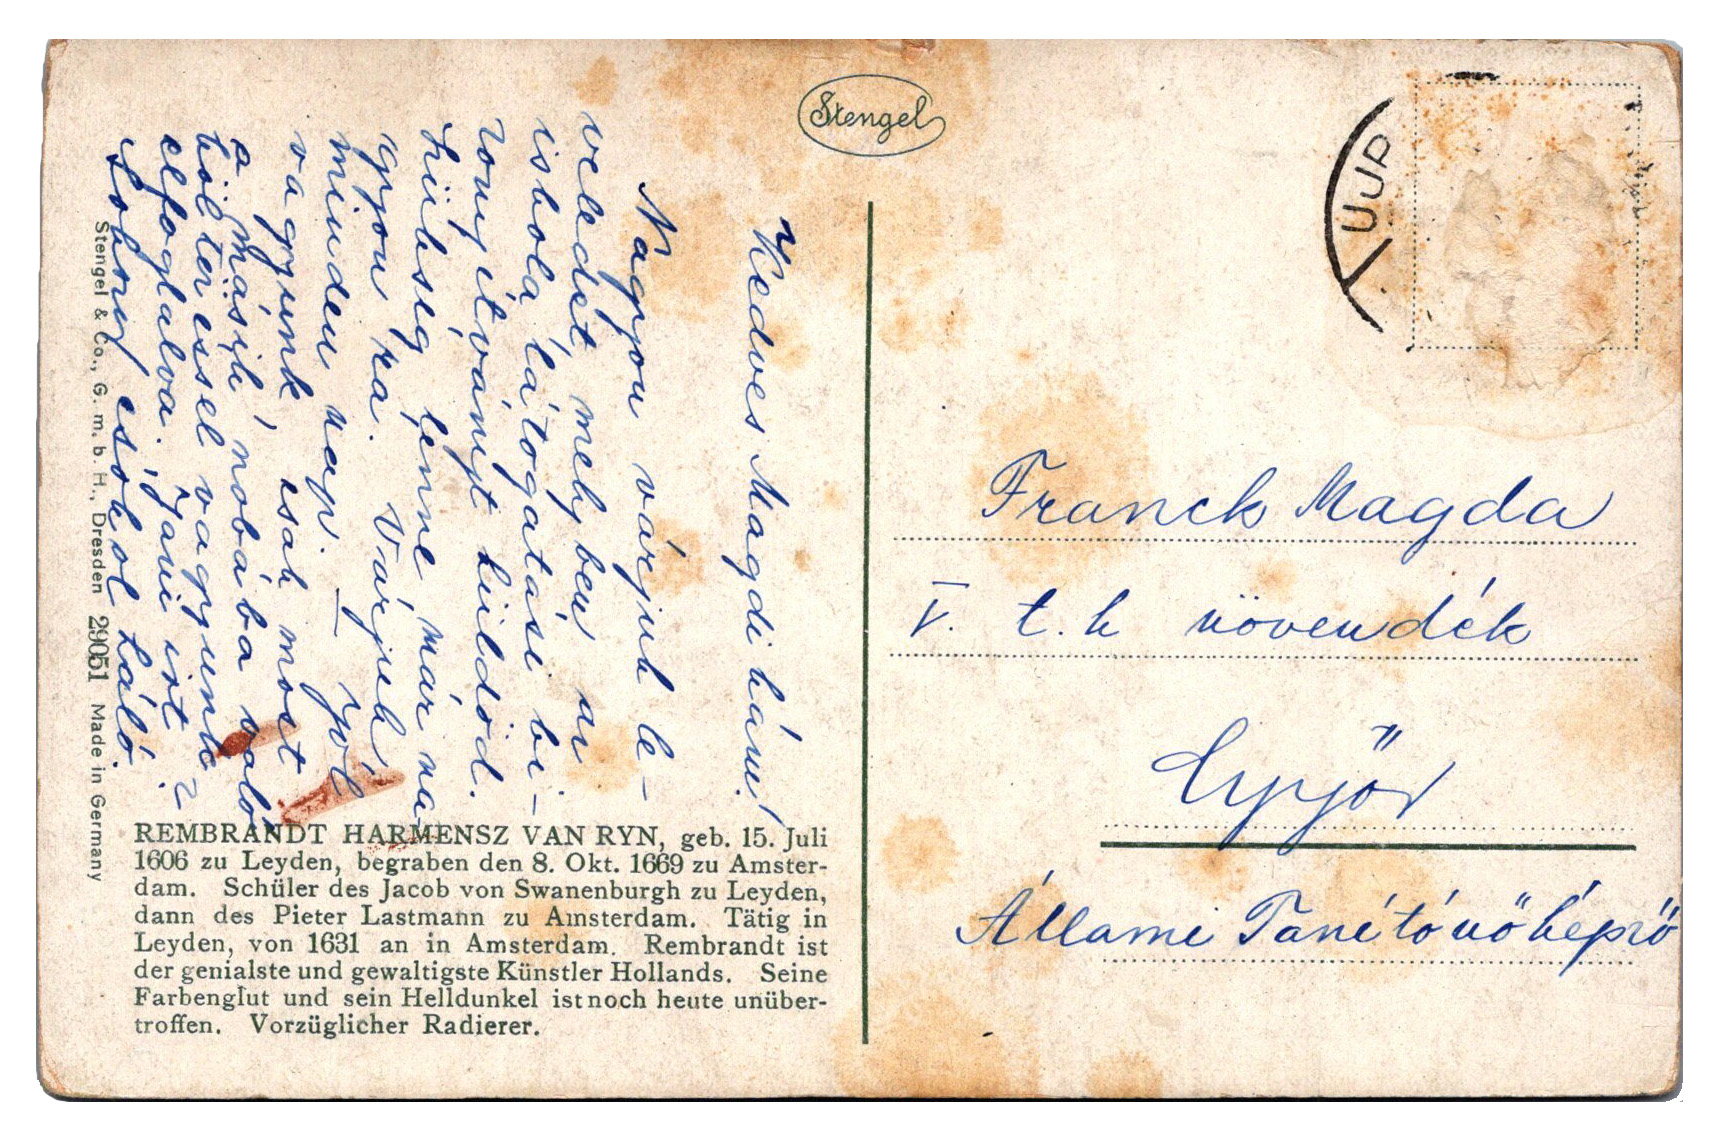 Stengel
ÚJP
Kedves Magdi kám!
Nagyon várjuk le-
veledet melyben az
iskola látogatási bi-
zonyítványt küldöd.
Szükség lenne már na-
gyon rá. Várjuk
minden nap. – Jól
vagyunk, csak most
a másik nobába való
költözéssel vagyunk
elfoglalva. Jani írt ?
Sokszor csókol Láló.
Stengel & Co., G. m. b. H., Dresden 29051 Made in Germany
REMBRANDT HARMENSZ VAN RYN, geb. 15. Juli
1606 zu Leyden, begraben den 8. Okt. 1669 zu Amster-
dam. Schüler des Jacob von Swanenburgh zu Leyden,
dann des Pieter Lastmann zu Amsterdam. Tätig in
Leyden, von 1631 an in Amsterdam. Rembrandt ist
der genialste und gewaltigste Künstler Hollands. Seine
Farbenglut und sein Helldunkel ist noch heute unüber-
troffen. Vorzüglicher Radierer.
Franck Magda
V. t. k növendék
Győr
Állami Tanítónőképző